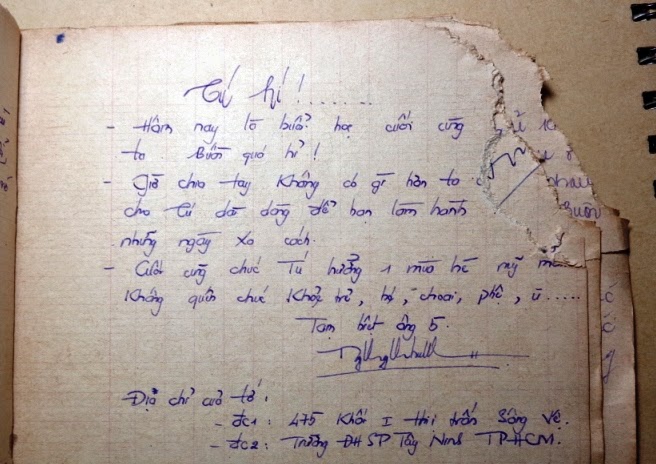 Tú hí !........
- Hôm nay là buổi học cuối cùng
ta. Buồn quá hỉ !
- Giờ chia tay không có gì hơn ta
cho Tú dài dòng để bạn làm hành
những ngày xa cách.
- Cuối cùng chúc Tú hưởng 1 mùa hè mỹ mãn
Không quên chúc khỏe, trẻ, bộ, choai, phệ, ú.....
Tạm biệt ông 5.
Địa chỉ của tớ :
- đc1 : 475 Khối I Thị trấn Sông Vệ.
- đc2 : Trường ĐHSP Tây Ninh TPHCM.